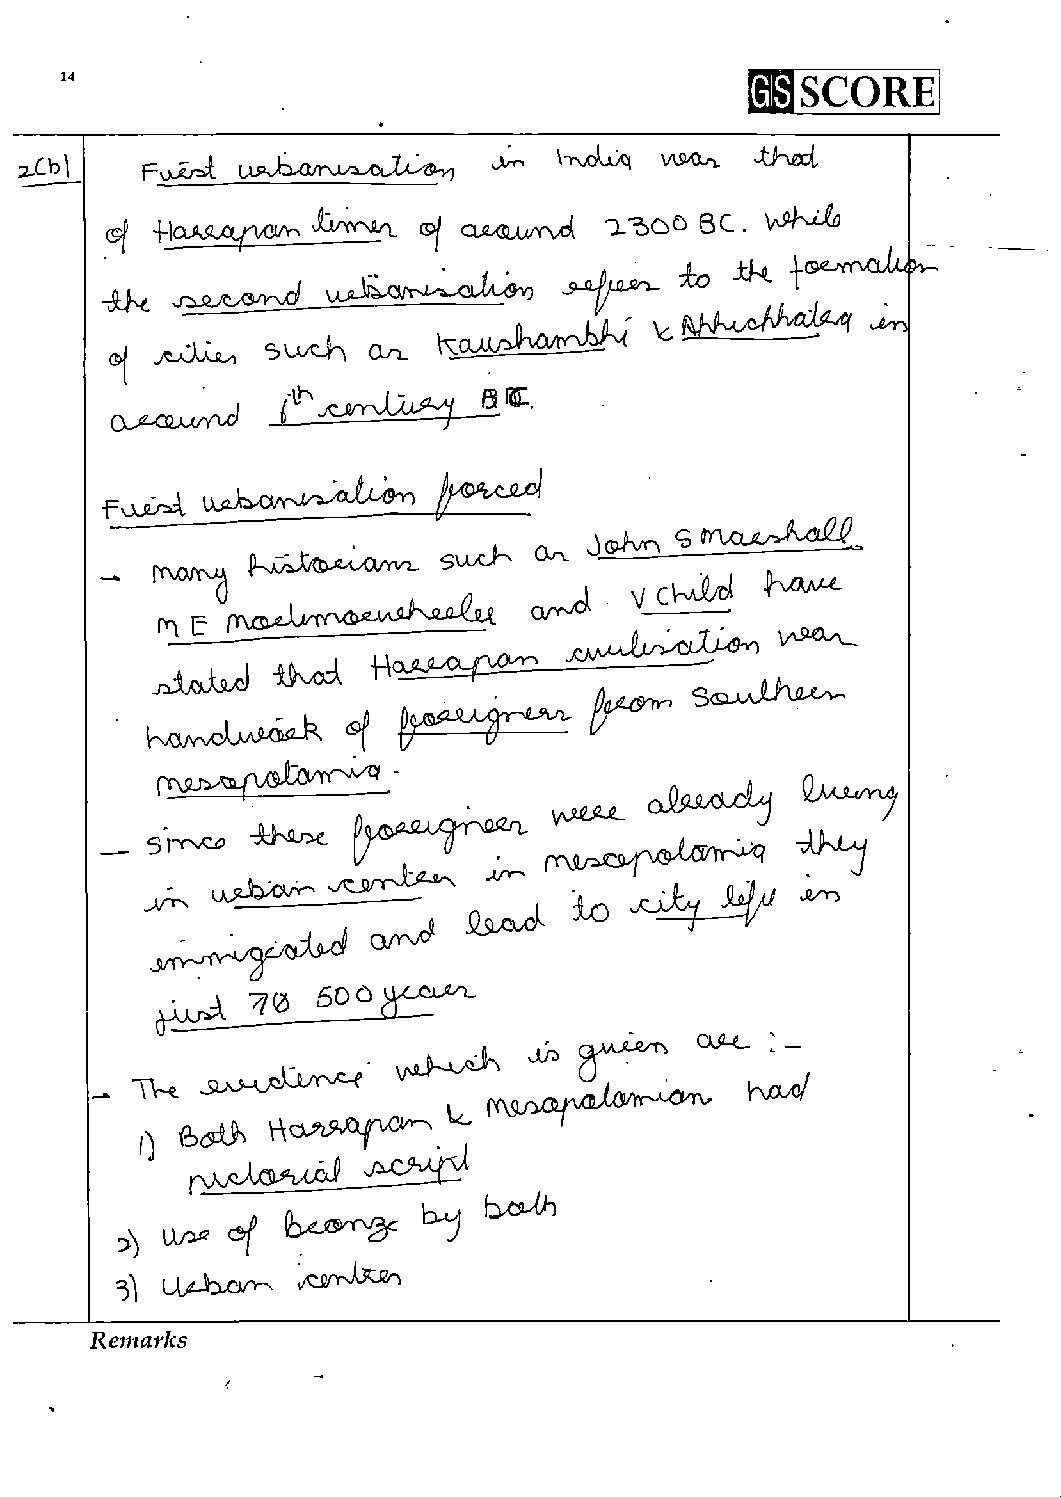 14
GS SCORE
2(b) First urbanisation in India was that
of Harrapan times of around 2300 BC. While
the second urbanisation refers to the formation
of cities such as Kaushambhi & Ahhichhatra in
around 6th century BC.
First urbanisation forced
→ many historians such as John S Marshall
M E and V Child have
stated that Harrapan civilisation was
handwork of foreigners from Southern
mesopotamia.
- Since these foreigners were already living
in urban centers in mesopotamia they
immigrated and lead to city life in
just 500 years
- The evidence which is given are :-
1) Both Harrapan & Mesopatamian had
pictorial script
2) Use of bronze by both
3) Urban centres
Remarks